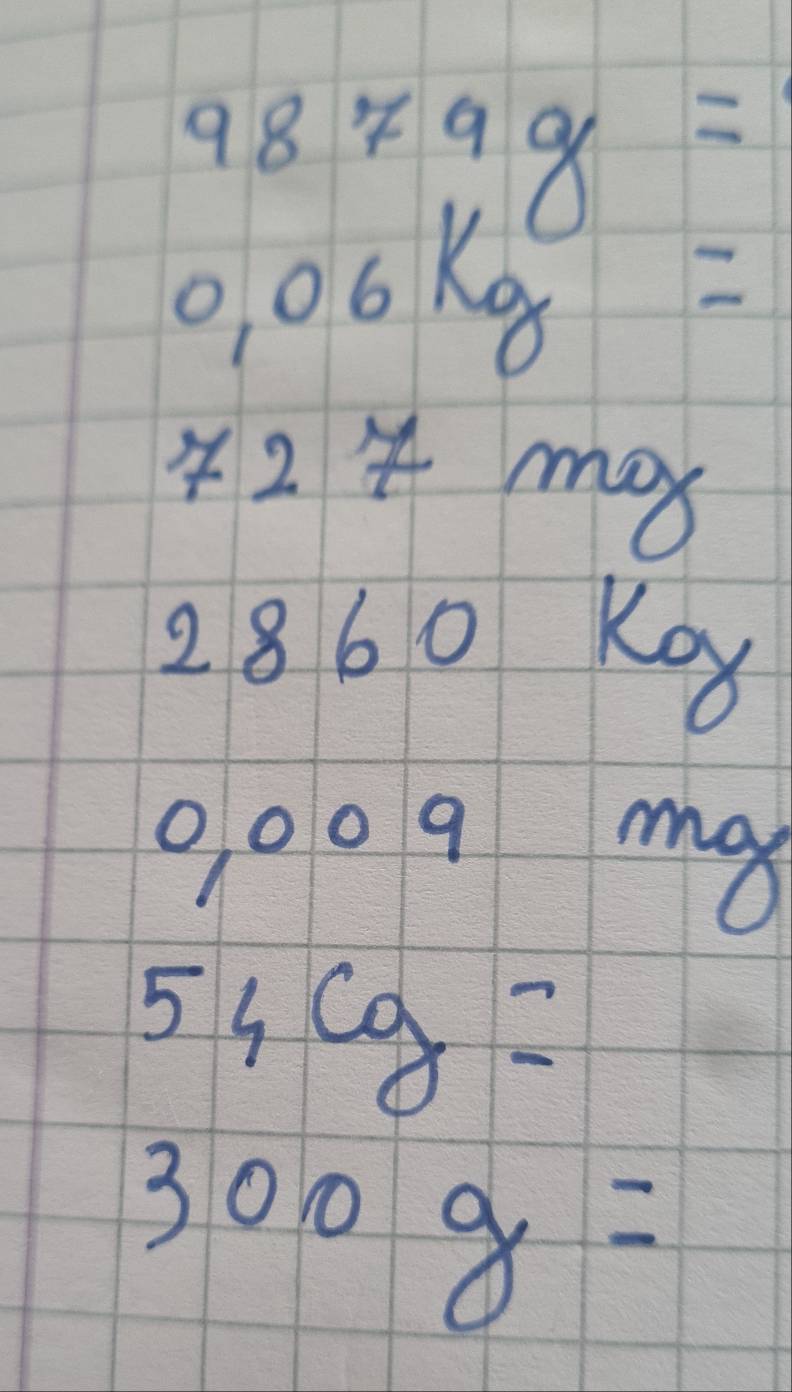 9879g =
0,06Kg =
727 mg
2860 Kg
0,009 mg
54Cg =
300 g =